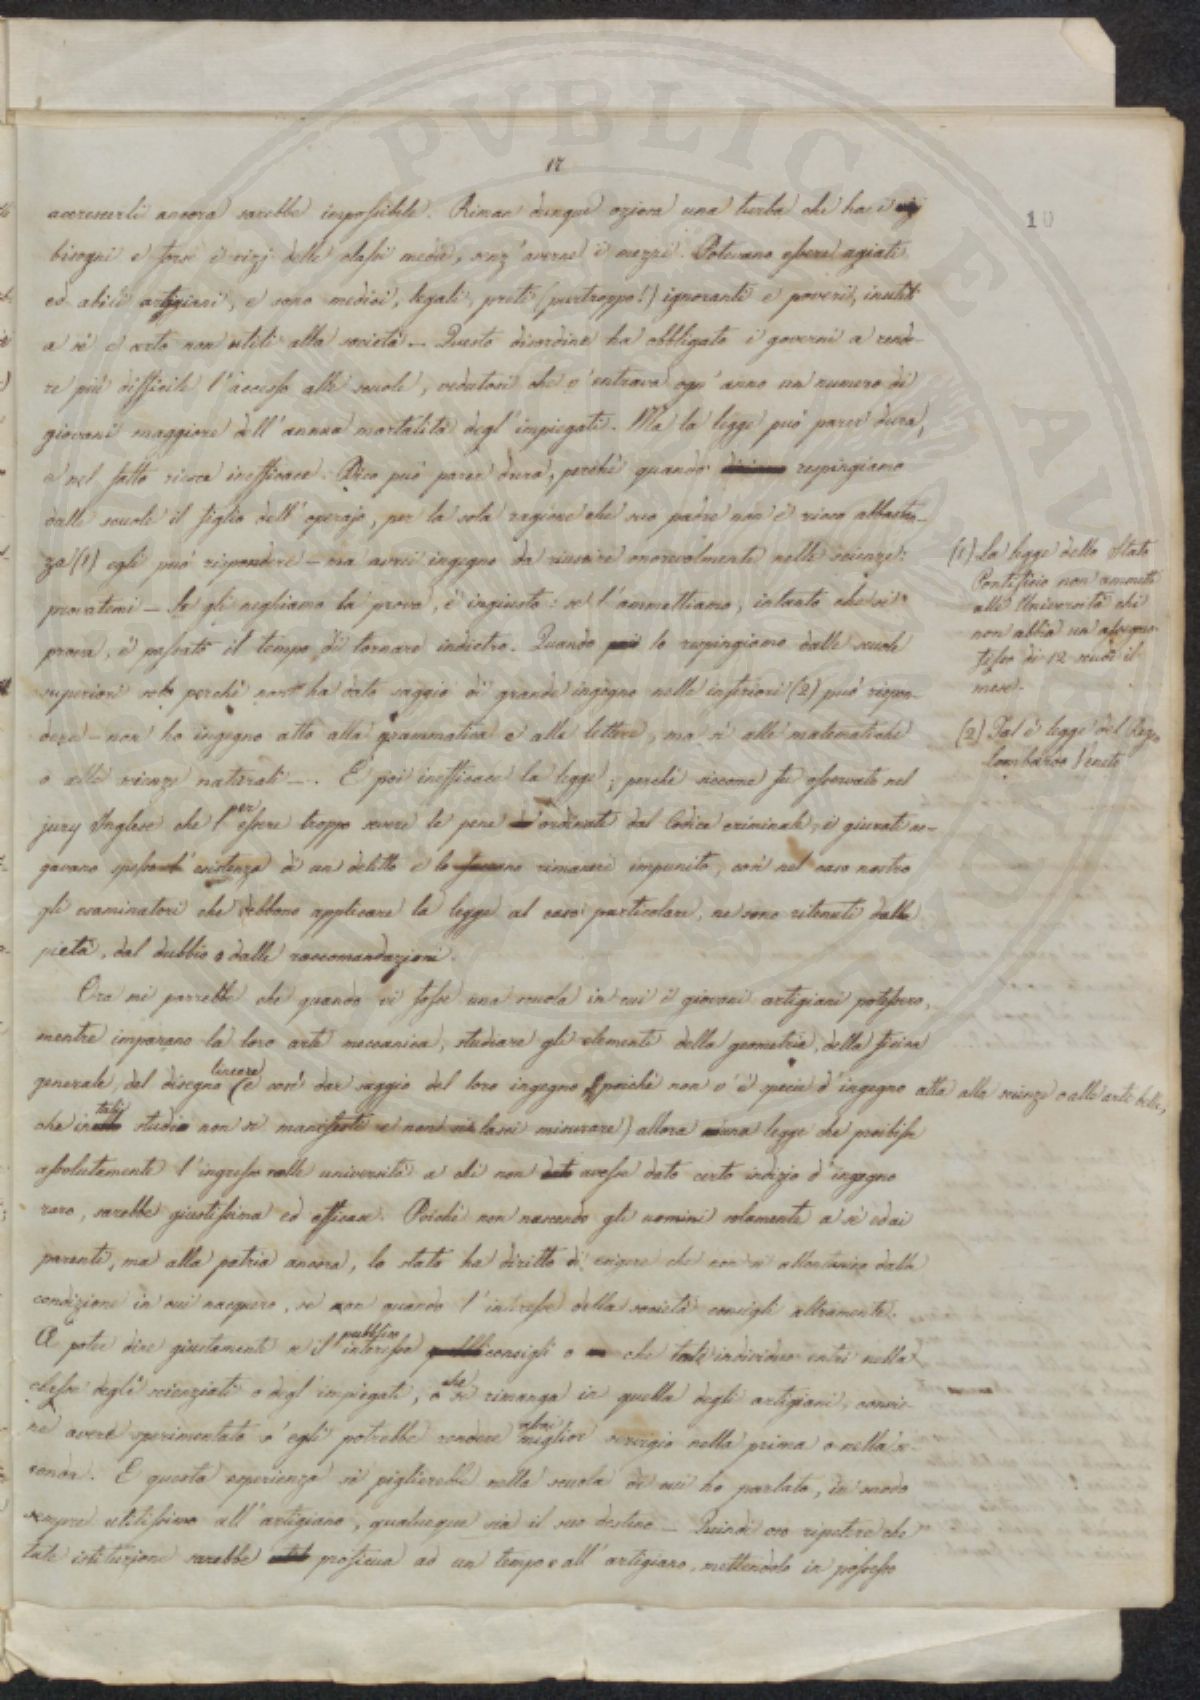 17
10
accrescerli ancora sarebbe impossibile. Riman dunque oziosa una turba che ha i
bisogni e forse i vizj delle classi medie, senz'averne i mezzi. Potevano essere agiati
ed abili artigiani, e sono medici, legali, preti (purtroppo!) ignoranti e poveri, inutili
a sè e certo non utili alla società — Questo disordine ha obbligato i governi a rende-
re più difficile l'accesso alle scuole, vedutosi che v'entrava ogn'anno un numero di
giovani maggiore dell'annua mortalità degl'impiegati. Ma la legge può parer dura,
e nel fatto riesce inefficace. Dico può parer dura, perchè quando respingiamo
dalle scuole il figlio dell'operajo, per la sola ragione che suo padre non è ricco abbastan-
za (1) egli può rispondere — ma avrei ingegno da riuscire onorevolmente nelle scienze:
provatemi — Se gli neghiamo la prova, è ingiusto: se l'ammettiamo, intanto che si
prova, è passato il tempo di tornare indietro. Quando poi lo respingiamo dalle scuole
superiori solo perchè non ha dato saggio di grande ingegno nelle inferiori (2) può rispon-
dere — non ho ingegno atto alla grammatica e alle lettere, ma sì alle matematiche
o alle scienze naturali —. È poi inefficace la legge; perchè siccome fu osservato nel
jury Inglese che per l'essere troppo severe le pene ordinate dal Codice criminale, i giurati ne-
gavano spesso l'esistenza di un delitto e lo facevano rimanere impunito, così nel caso nostro
gli esaminatori che debbono applicare la legge al caso particolare, ne sono ritenuti dalla
pietà, dal dubbio o dalle raccomandazioni.
Ora mi parrebbe che quando vi fosse una scuola in cui i giovani artigiani potessero,
mentre imparano la loro arte meccanica, studiare gli elementi della geometria, della fisica
generale, del disegno lineare (e così dar saggio del loro ingegno, poichè non v'è specie d'ingegno atta alle scienze o alle arti belle,
che in tali studi non si manifesti e non si lasci misurare) allora una legge che proibisse
assolutamente l'ingresso nelle università a chi non avesse dato certo indizio d'ingegno
raro, sarebbe giustissima ed efficace. Poichè non nascendo gli uomini solamente a sè ed ai
parenti, ma alla patria ancora, lo stato ha diritto di esigere che non si allontanino dalla
condizione in cui nacquero, se non quando l'interesse della società consigli altramente.
A poter dire giustamente se il pubblico interesse consigli o che tale individuo entri nella
classe degli scienziati o degl'impiegati, o che si rimanga in quella degli artigiani, convie-
ne avere sperimentato s'egli potrebbe rendere miglior servigio nella prima o nella se-
conda. E questa esperienza si piglierebbe nella scuola di cui ho parlato, in modo
sempre utilissimo all'artigiano, qualunque sia il suo destino — Quindi oso ripetere che
tale istituzione sarebbe proficua ad un tempo e all'artigiano, mettendolo in possesso
(1) La legge dello Stato
Pontificio non ammette
alle Università chi
non abbia un assegno
fisso di 12 scudi il
mese.
(2) Tal è legge del Regno
Lombardo Veneto